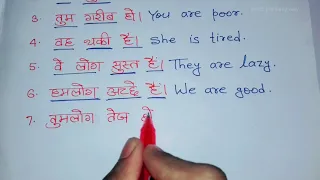 3. तुम गरीब हो। You are poor.
4. वह थकी है। She is tired.
5. वे लोग सुस्त हैं। They are lazy.
6. हमलोग अच्छे हैं। We are good.
7. तुमलोग तेज हो